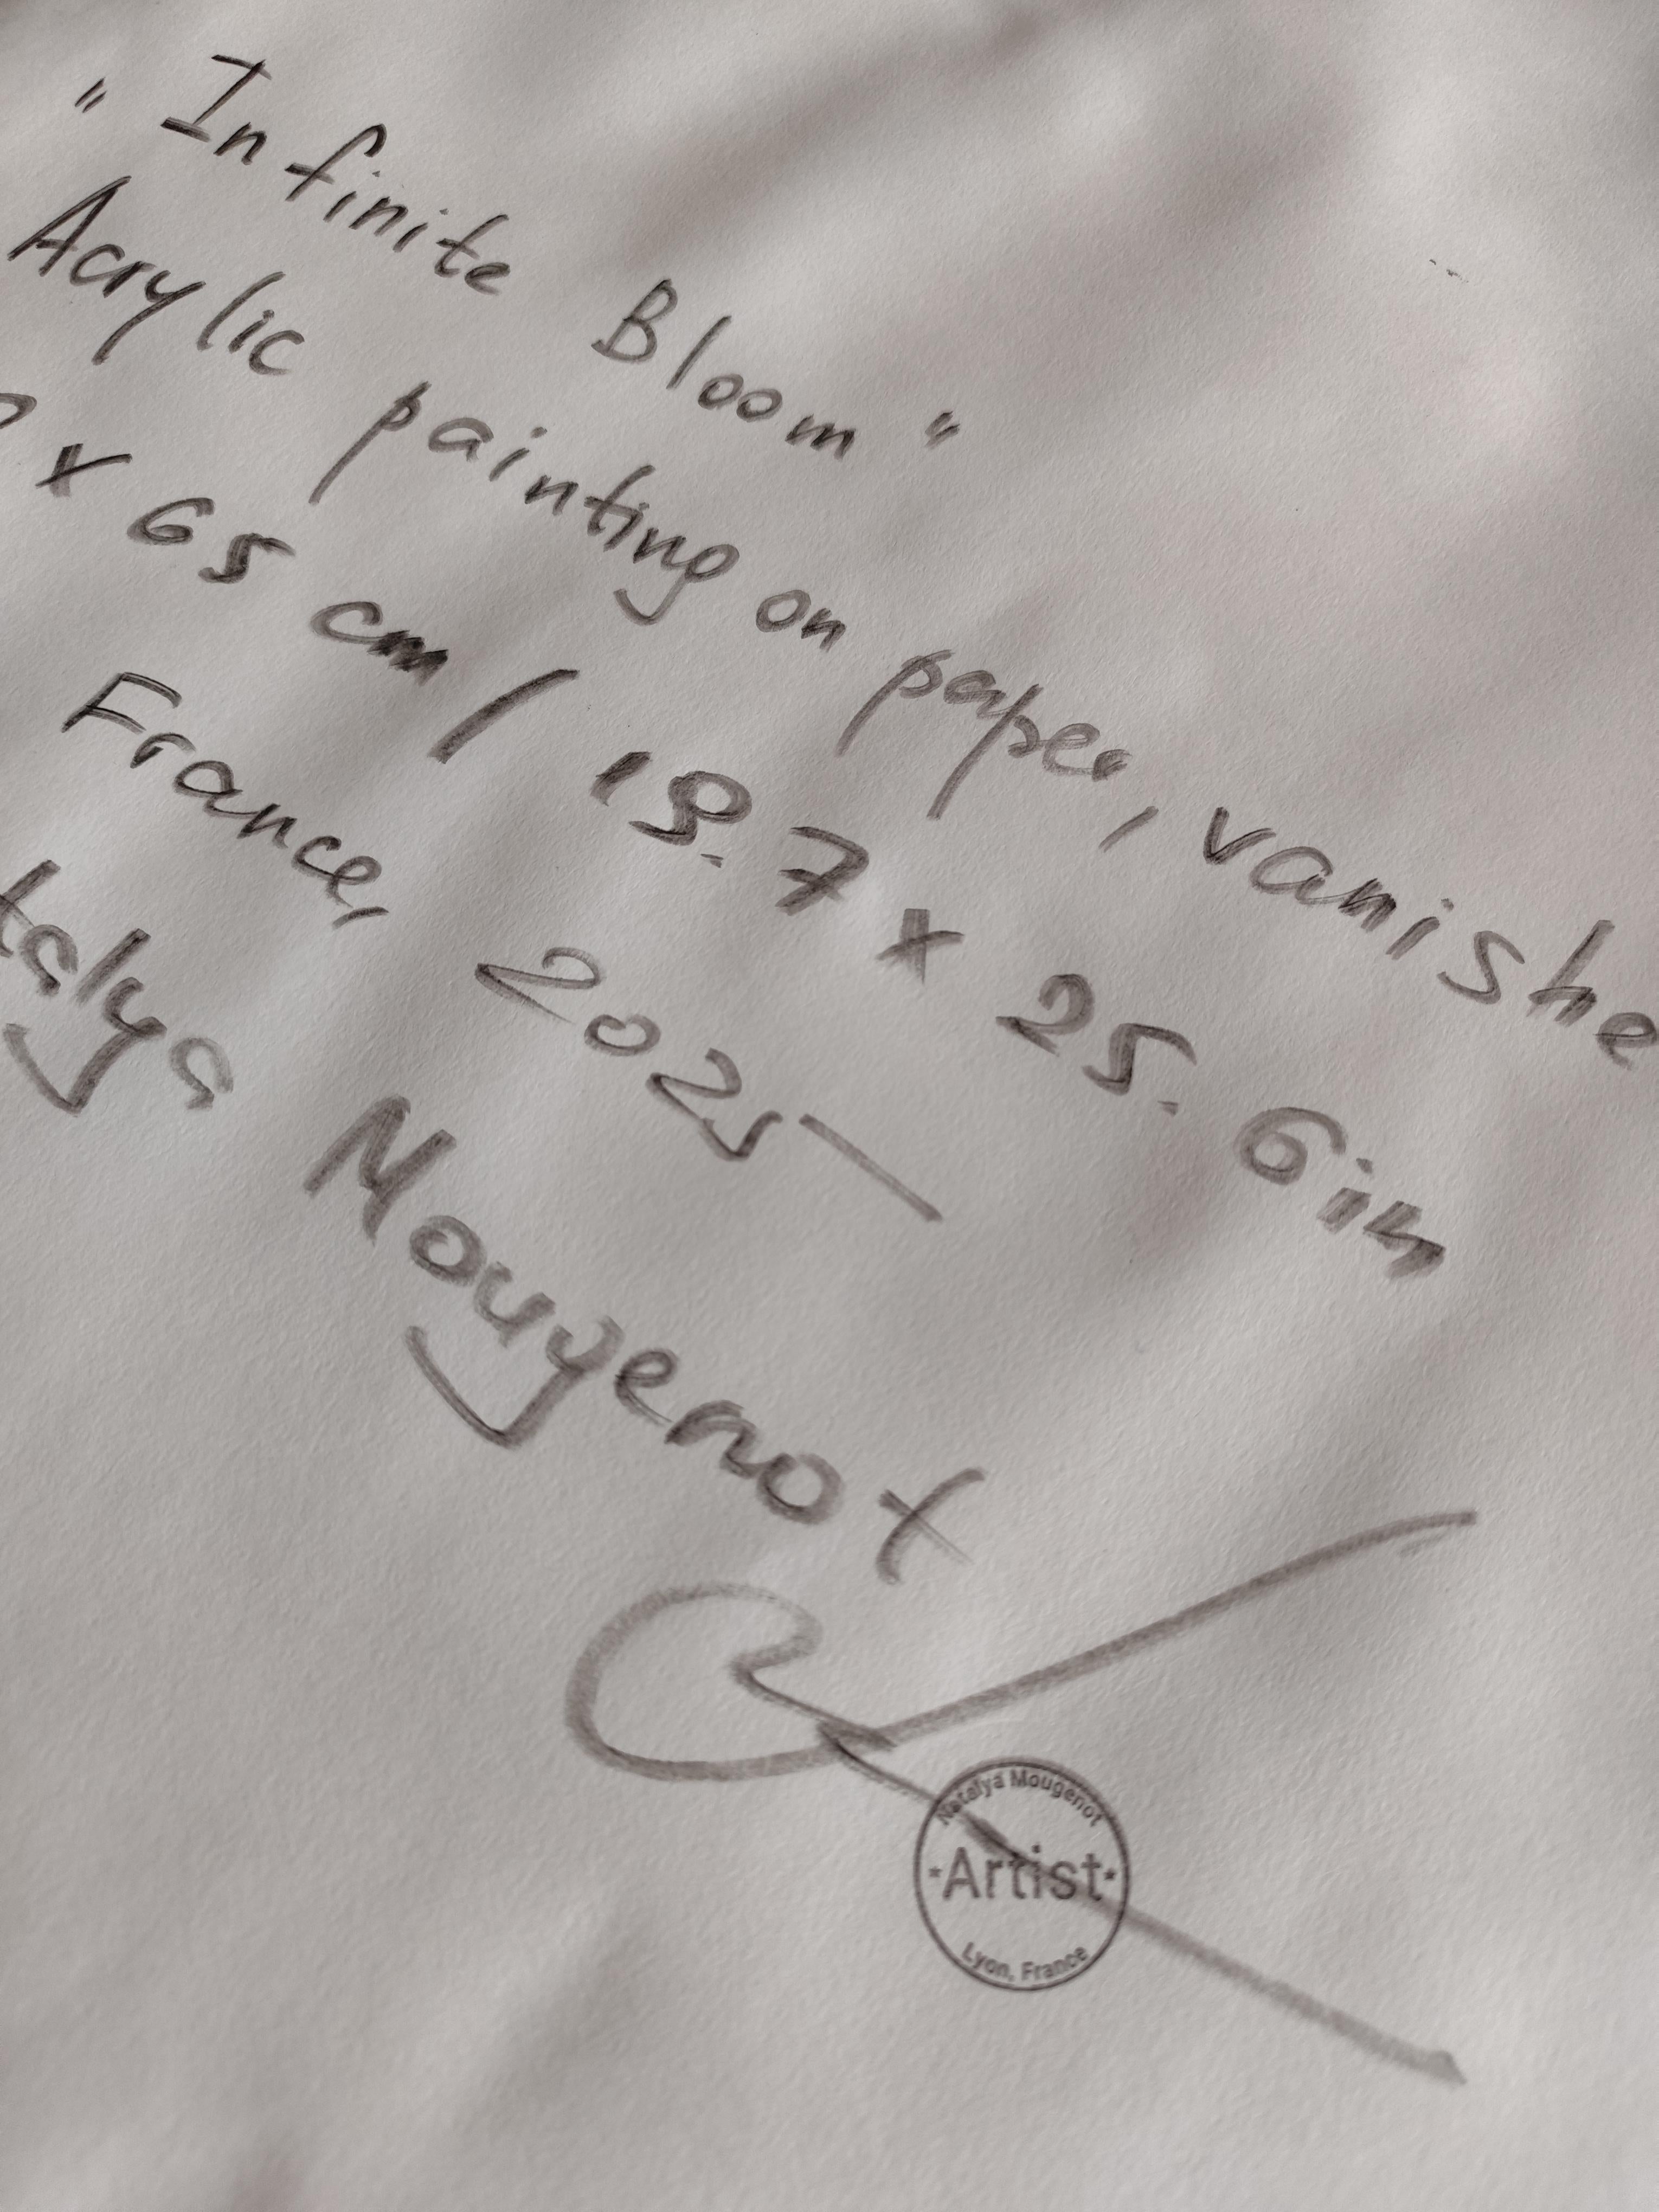 "Infinite Bloom"
Acrylic painting on paper, vanishe
x 65 cm / 19.7 x 25.6 in
France, 2025
talya Mougenot
Natalya Mougenot
Artist
Lyon, France